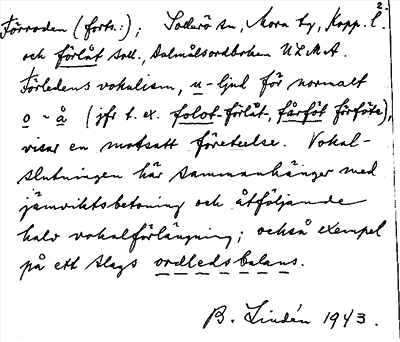 Förroden (forts.); Sollerö sn, Mora tg, Kopp. l.
och förlåt soll., Dalmålsordboken ULMA.
Förledens vokalism, u-ljud för normalt
o - å (jfr t. ex. folot-förlåt, fårföt förföta),
visar en motsatt företeelse. Vokal-
slutningen här sammanhänger med
jämviktsbetoning och åtföljande
halv vokalförlängning; också exempel
på ett slags ordledsbalans.
B. Lindén 1943.